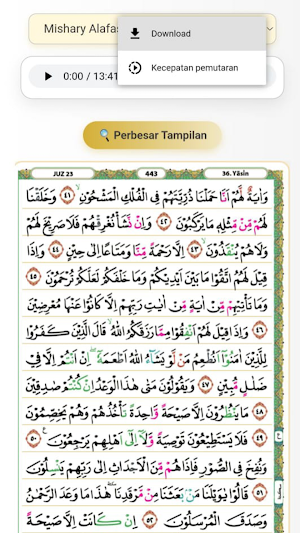 Mishary Alafas
Download
Kecepatan pemutaran
0:00 / 13:41
🔍 Perbesar Tampilan
JUZ 23 443 36. Yāsīn
وَاٰيَةٌ لَّهُمْ اَنَّا حَمَلْنَا ذُرِّيَّتَهُمْ فِى الْفُلْكِ الْمَشْحُوْنِۙ ٤١ وَخَلَقْنَا
لَهُمْ مِّنْ مِّثْلِهٖ مَا يَرْكَبُوْنَ ٤٢ وَاِنْ نَّشَأْ نُغْرِقْهُمْ فَلَا صَرِيْخَ لَهُمْ
وَلَا هُمْ يُنْقَذُوْنَۙ ٤٣ اِلَّا رَحْمَةً مِّنَّا وَمَتَاعًا اِلٰى حِيْنٍ ٤٤ وَاِذَا
قِيْلَ لَهُمُ اتَّقُوْا مَا بَيْنَ اَيْدِيْكُمْ وَمَا خَلْفَكُمْ لَعَلَّكُمْ تُرْحَمُوْنَ ٤٥
وَمَا تَأْتِيْهِمْ مِّنْ اٰيَةٍ مِّنْ اٰيٰتِ رَبِّهِمْ اِلَّا كَانُوْا عَنْهَا مُعْرِضِيْنَ
٤٦ وَاِذَا قِيْلَ لَهُمْ اَنْفِقُوْا مِمَّا رَزَقَكُمُ اللّٰهُ ۙقَالَ الَّذِيْنَ كَفَرُوْا
لِلَّذِيْنَ اٰمَنُوْٓا اَنُطْعِمُ مَنْ لَّوْ يَشَاۤءُ اللّٰهُ اَطْعَمَهٗٓ ۖاِنْ اَنْتُمْ اِلَّا فِيْ
ضَلٰلٍ مُّبِيْنٍ ٤٧ وَيَقُوْلُوْنَ مَتٰى هٰذَا الْوَعْدُ اِنْ كُنْتُمْ صٰدِقِيْنَ
٤٨ مَا يَنْظُرُوْنَ اِلَّا صَيْحَةً وَّاحِدَةً تَأْخُذُهُمْ وَهُمْ يَخِصِّمُوْنَ
٤٩ فَلَا يَسْتَطِيْعُوْنَ تَوْصِيَةً وَّلَآ اِلٰٓى اَهْلِهِمْ يَرْجِعُوْنَ ٥٠
وَنُفِخَ فِى الصُّوْرِ فَاِذَا هُمْ مِّنَ الْاَجْدَاثِ اِلٰى رَبِّهِمْ يَنْسِلُوْنَ
٥١ قَالُوْا يٰوَيْلَنَا مَنْۢ بَعَثَنَا مِنْ مَّرْقَدِنَا ۜهٰذَا مَا وَعَدَ الرَّحْمٰنُ
وَصَدَقَ الْمُرْسَلُوْنَ ٥٢ اِنْ كَانَتْ اِلَّا صَيْحَةً